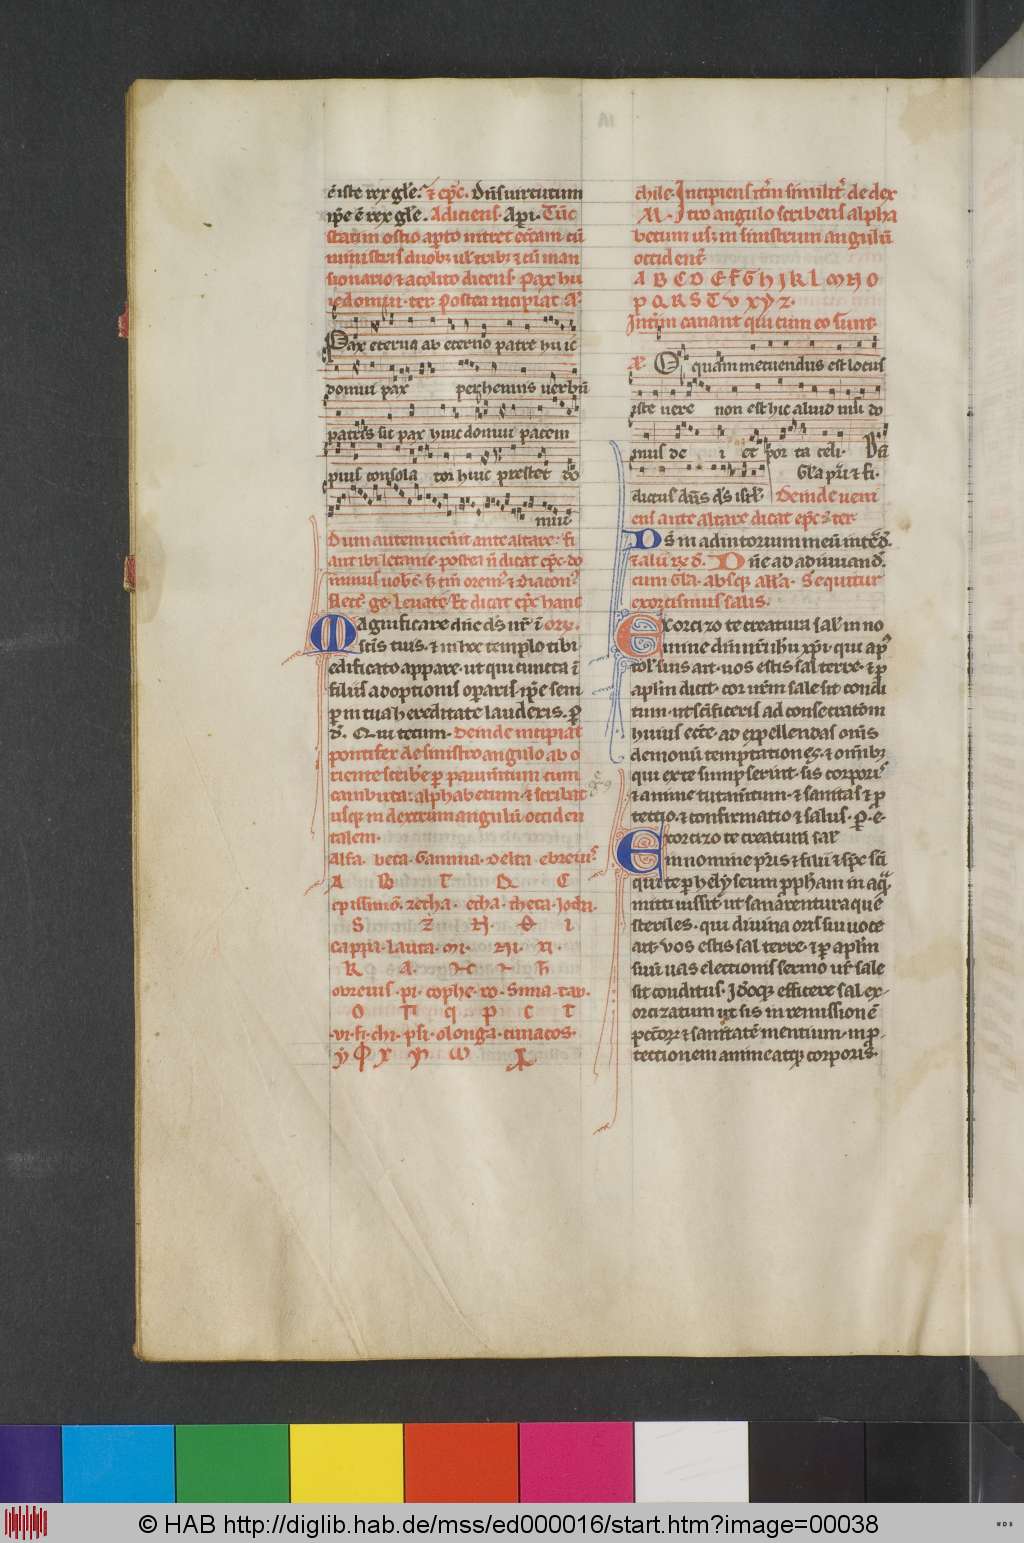 ē iste rex gl̄e. ⁊ ep̄c. Dn̄s uirtutum
ip̄e ē rex gl̄e. Adiciens. Ap̄i. Tūc
statim ostio ap̄to intret ecc̄am cū
ministris duob; ul̓ trib; ⁊ cū man
sionario ⁊ acolito dicens. Pax hu
ic domui. ter. Postea incipiat a̓
Pax eterna ab eterno patre huic
domui pax perhennis uerbū
patris sit pax huic domui pacem
pius consola tor huic prestet do
mui.
Dum autem uen̄it ante altare. fi
ant ibi letanie. postea n̄ dicat ep̄c. do
minus uob̄c. s̄ tm̄ orem̓. ⁊ diacon̓.
flect̓ ge. Leuate. Et dicat ep̄c hanc
Magnificare dn̄e ds̄ nr̄ ī or̄.
sc̄is tuis. ⁊ in hoc templo tibi
edificato appare. ut qui cuncta ī
filiis adoptionis oparis ip̄e sem
p̄ in tua hereditate lauderis. P̄
d̄. Qui tecum. Deinde incipiat
pontifex de sinistro angulo ab o
riente scribe p̄ pauim̄tum cum
cambuta: alphabetum. ⁊ scribat
usq; in dextrum angulū occiden
talem.
Alfa. beta. Gamma. Delta. ebreuis̓
A B Γ Δ E
epissimō. zetha. etha. theta. Joda.
S Z H. Θ I
cappa. lauta. mi. ni. xi.
K
obreuis. pi. cophe. ro. Sima. tav.
O Π q P C T
vi. fi. chi. psi. olonga. cunacos.
y Φ X ω
chile. Incipiens it̓m similit̓. de dex
tro angulo scribens alpha
betum usq; in sinistrum angulū
occident̓
A B C D E F G H I K L M N O
P Q R S T V X Y Z.
Int̓im canant qui cum eo sunt.
O quam metuendus est locus
iste uere non est hic aliud nisi do
mus de i et por ta celi.
Gl̄a pr̄i ⁊ fi.
dictus dn̄s ds̄ isrl̓. Deinde ueni
ens ante altare dicat ep̄c ter
Ds̄ in adiutorium meū intēd̄.
⁊ alii r̄x d̄. Dn̄e ad adiuuand̄.
cum Gl̄a. absq; all̄a. Sequitur
exorcismus salis.
Exorcizo te creatura sal̓ in no
mine dn̄i nr̄i ih̄u xp̄i. qui ap̓
tol̓ suis ait. uos estis sal terre. ⁊ p̄
aplm̄ dicit. cor nr̄m sale sit condi
tum. ut sc̄ificeris ad consecratōm
huius ecc̄e. ad expellendas om̄s
demonū temptationes. ⁊ om̄ib;
qui ex te sumpserint. sis corporis̓
⁊ anime tutam̄tum. ⁊ sanitas ⁊ p̄
tectio. ⁊ confirmatio ⁊ salus. P̄. e.
Exorcizo te creatura sal̓
in nomine pr̄is ⁊ filii ⁊ sp̄c sc̄i
qui te p̄ helyseum pp̄ham in aq̄
mitti iussit. ut sanarentur aque
steriles. qui diuina oris sui uoce
ait. Vos estis sal terre. ⁊ p̄ aplm̄
suū uas electionis sermo nr̄ sale
sit conditus. Idōq; efficere sal ex
orcizatum ut sis in remissionē
pectoꝝ ⁊ sanitatē mentium. in p̄
tectionem anime atq; corporis.
© HAB http://diglib.hab.de/mss/ed000016/start.htm?image=00038